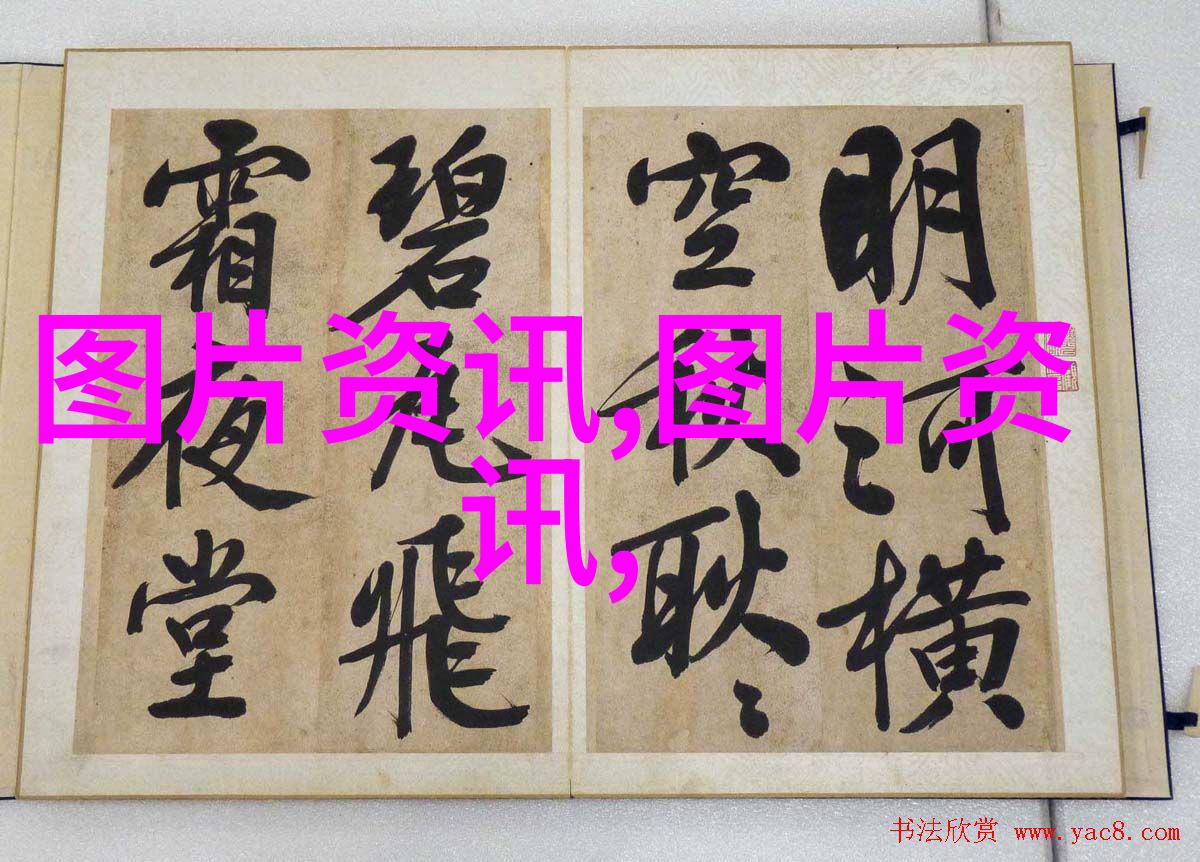 明河橫
空秋耿〻
碧瓦飛
霜夜堂
图片资讯,图片资
讯,
书法欣赏 www.yac8.com